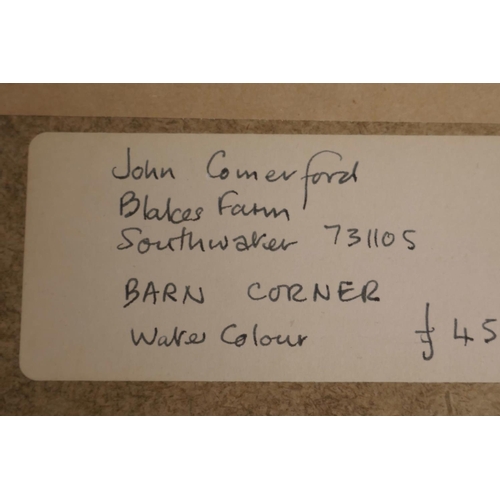 John Comerford
Blakes Farm
Southwater 731105
BARN CORNER
Water Colour £45